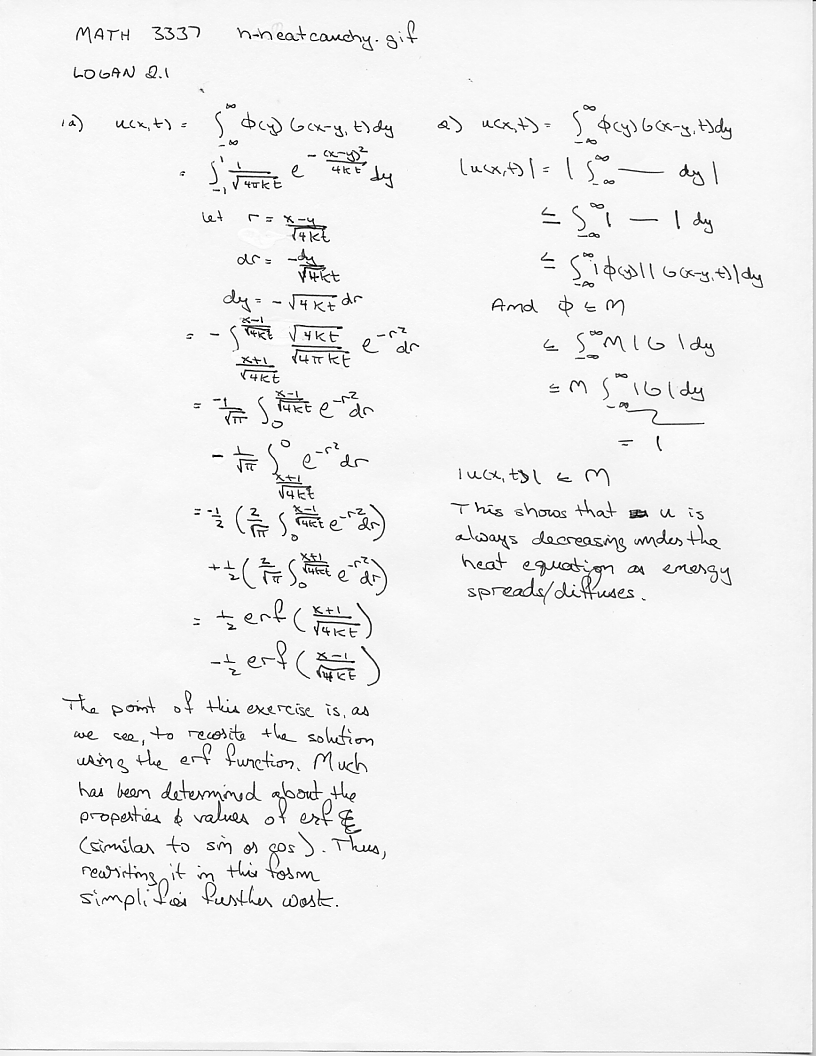 MATH 3337 h-heatcauchy.gif
LOGAN 2.1
1a) u(x,t) = ∫_{-∞}^{∞} φ(y) G(x-y,t) dy
= ∫_{-1}^{1} 1/√(4πkt) e^{-(x-y)²/4kt} dy
Let r = (x-y)/√(4kt)
dr = -dy/√(4kt)
dy = -√(4kt) dr
= - ∫_{(x+1)/√(4kt)}^{(x-1)/√(4kt)} √(4kt)/√(4πkt) e^{-r²} dr
= -1/√π ∫_{0}^{(x-1)/√(4kt)} e^{-r²} dr
- 1/√π ∫_{(x+1)/√(4kt)}^{0} e^{-r²} dr
= -1/2 (2/√π ∫_{0}^{(x-1)/√(4kt)} e^{-r²} dr)
+ 1/2 (2/√π ∫_{0}^{(x+1)/√(4kt)} e^{-r²} dr)
= 1/2 erf((x+1)/√(4kt))
- 1/2 erf((x-1)/√(4kt))
The point of this exercise is, as
we see, to rewrite the solution
using the erf function. Much
has been determined about the
properties & values of erf
(similar to sin or cos). Thus,
rewriting it in this form
simplifies further work.
2) u(x,t) = ∫_{-∞}^{∞} φ(y) G(x-y,t) dy
|u(x,t)| = | ∫_{-∞}^{∞} — dy |
≤ ∫_{-∞}^{∞} | — | dy
≤ ∫_{-∞}^{∞} |φ(y)| |G(x-y,t)| dy
And φ ≤ M
≤ ∫_{-∞}^{∞} M |G| dy
≤ M ∫_{-∞}^{∞} |G| dy
= 1
|u(x,t)| ≤ M
This shows that u is
always decreasing under the
heat equation as energy
spreads/diffuses.